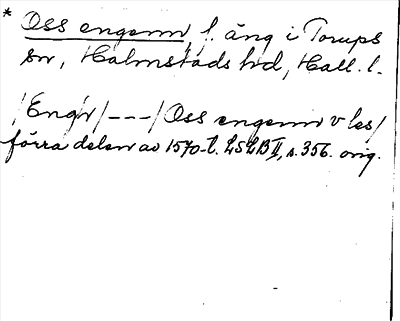 * Oss engenn, f. äng i Torups
sn, Halmstads hd, Hall. l.
/Engir/---/Oss engenn v les/
förra delen av 1570-t. LSLB II, s. 356. orig.